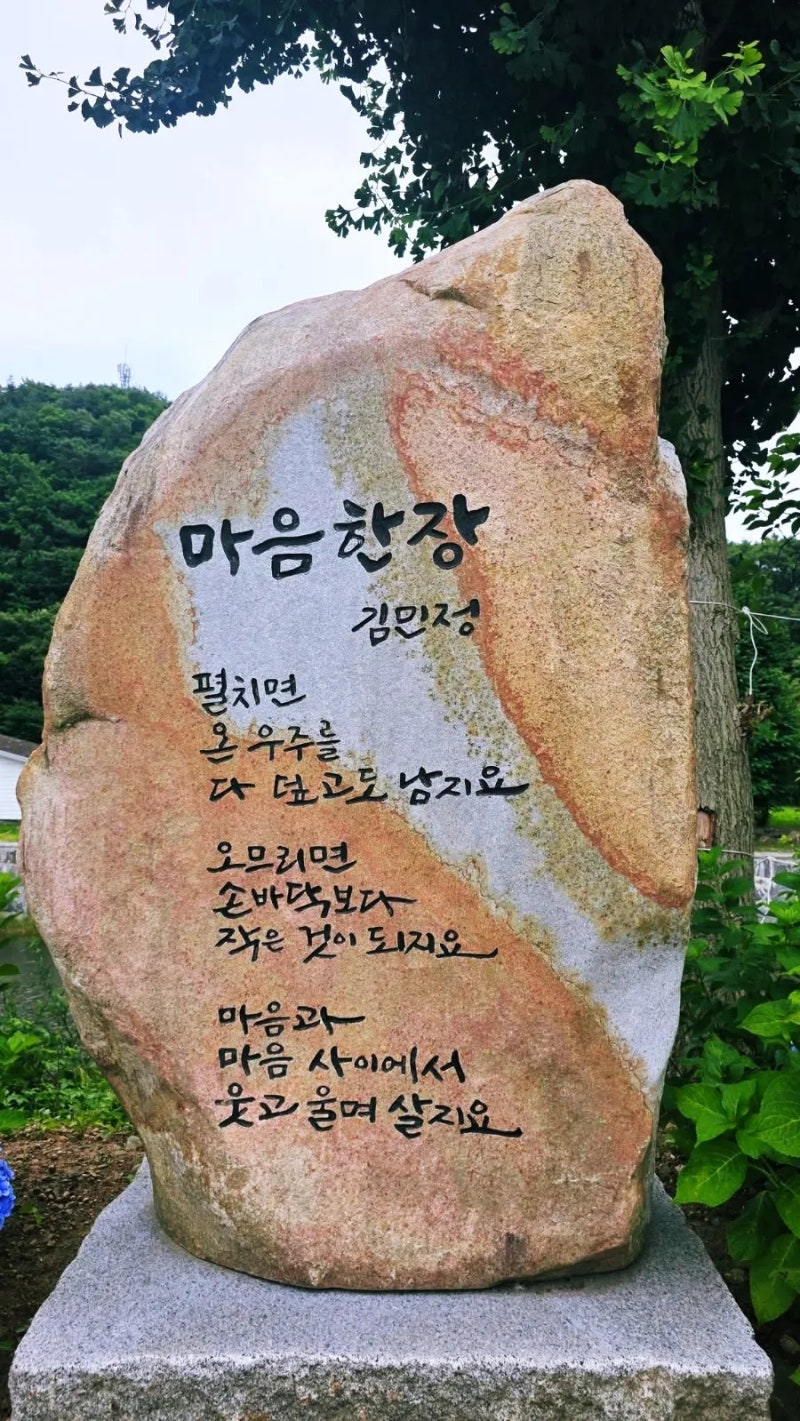 마음 한 장
김민정
펼치면
온 우주를
다 덮고도 남지요
오므리면
손바닥보다
작은 것이 되지요
마음과
마음 사이에서
웃고 울며 살지요